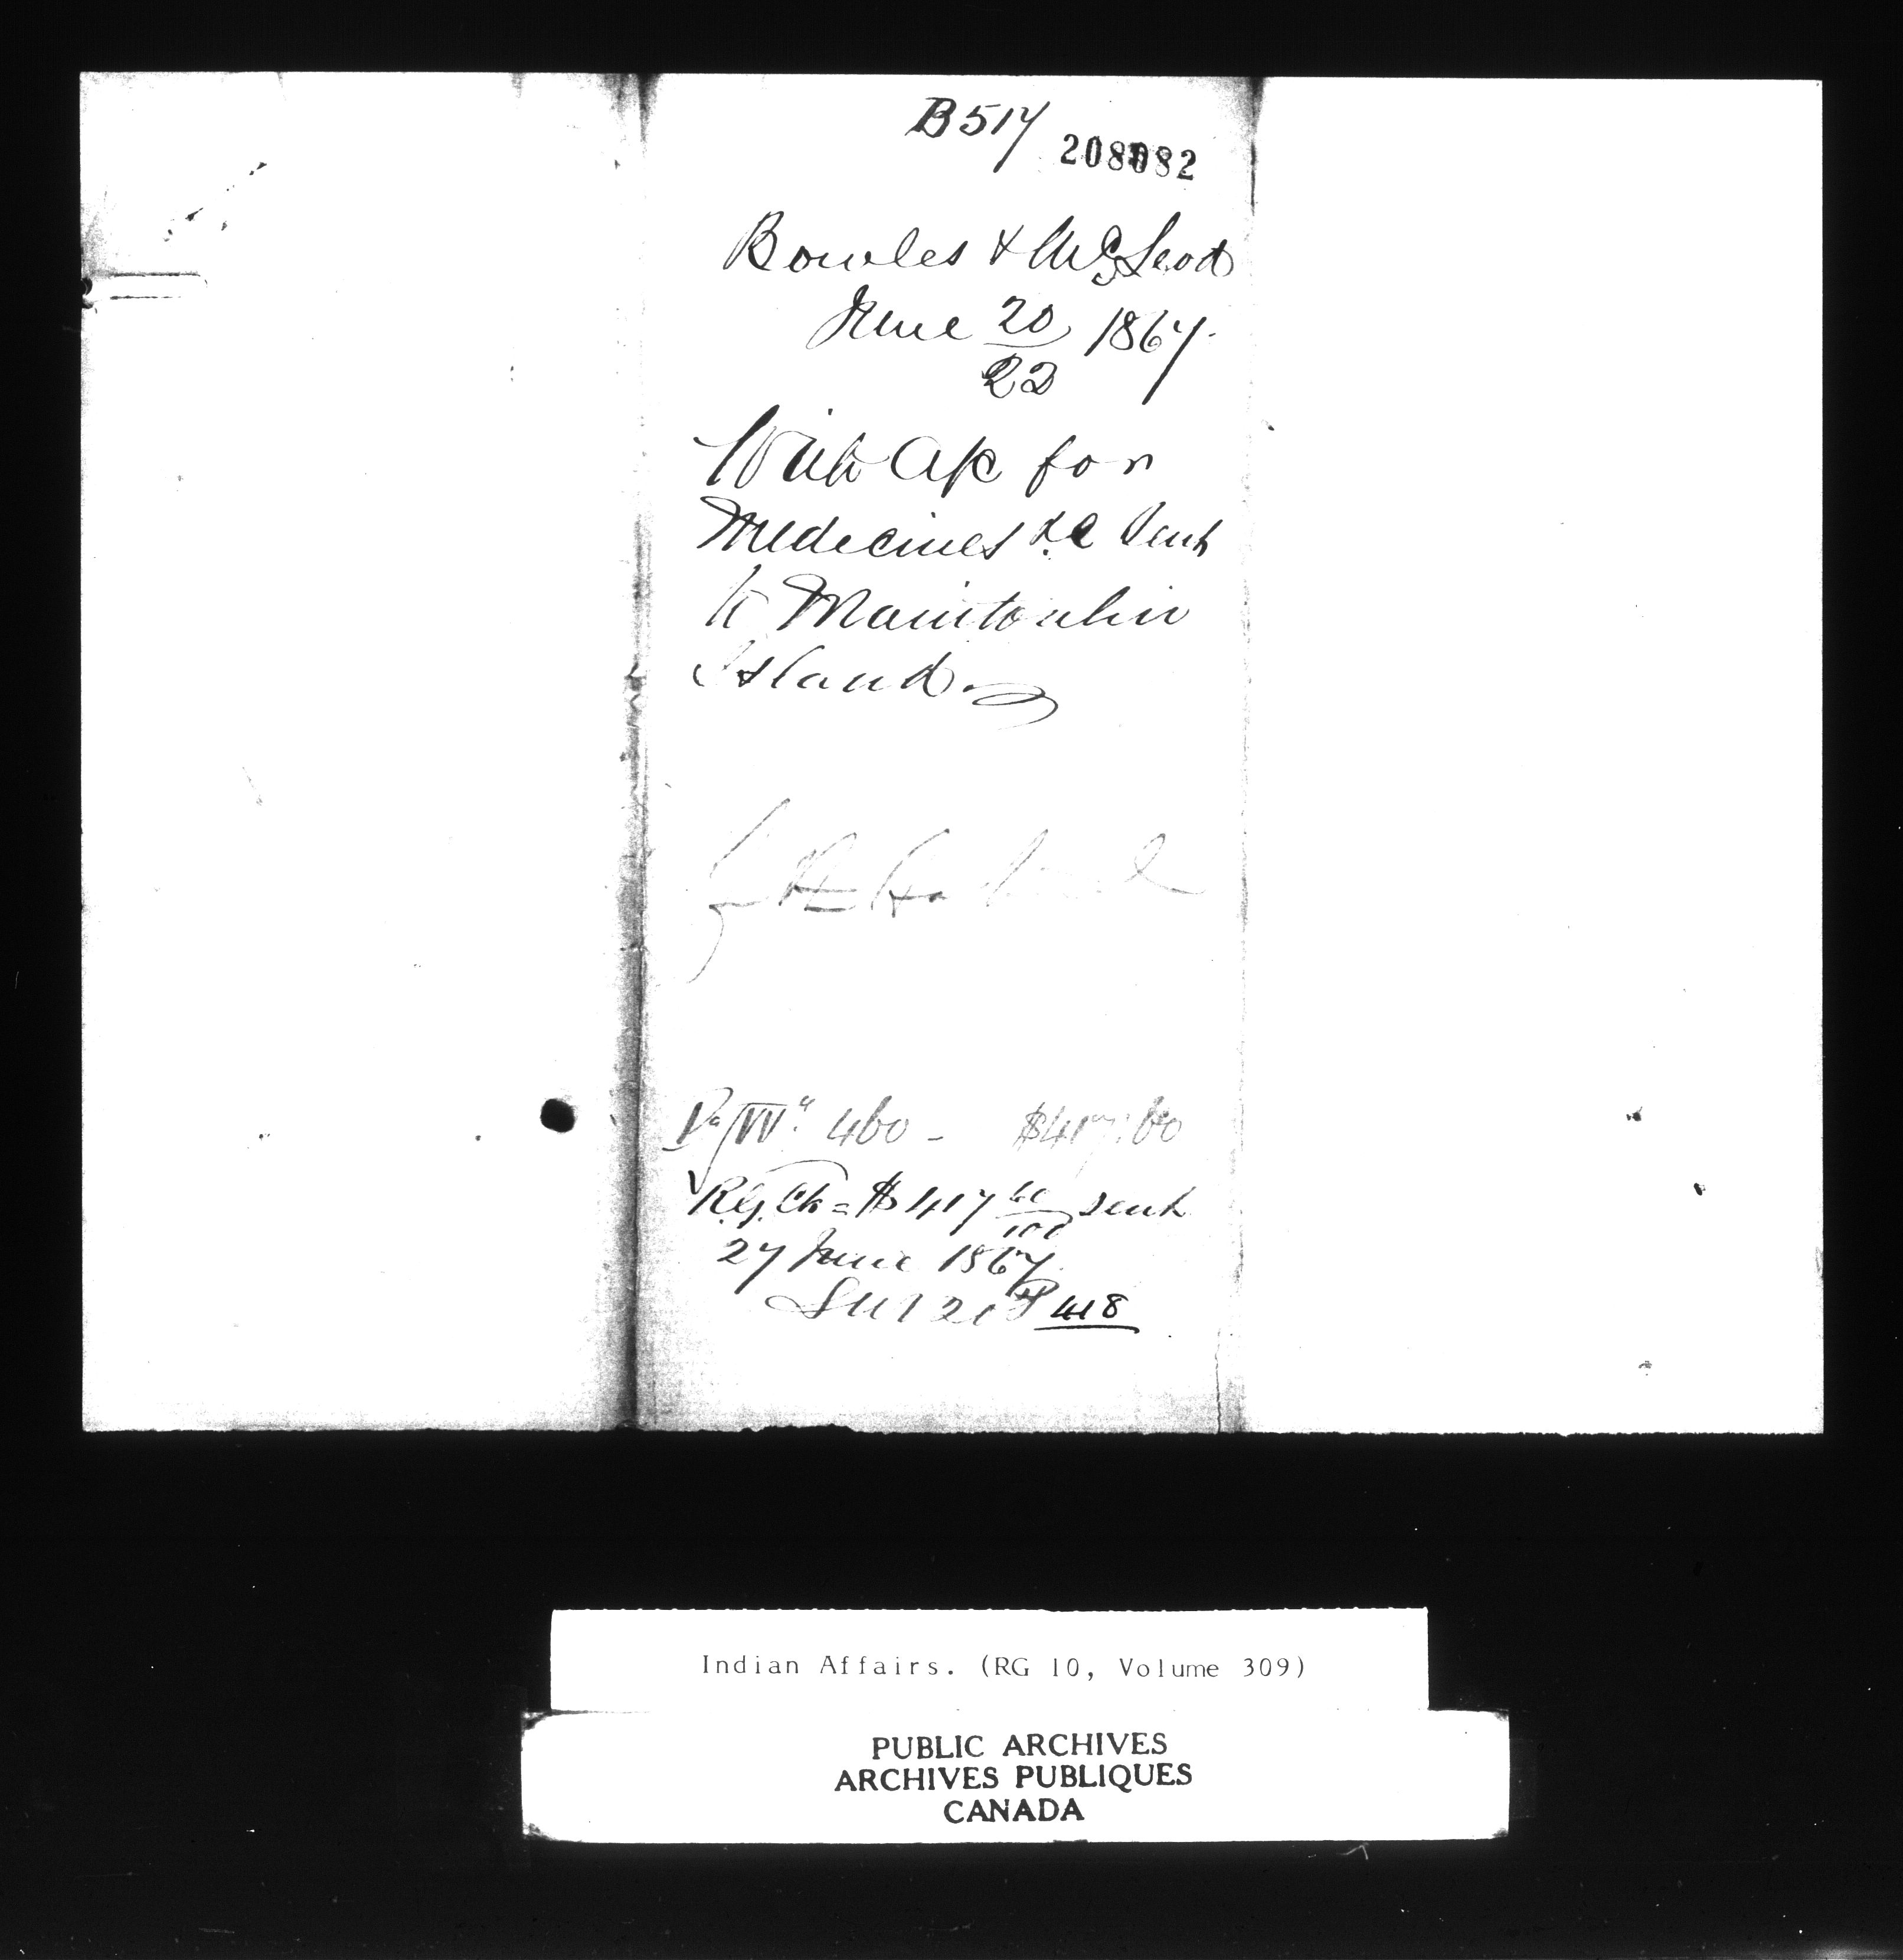 B517
208082
Bowles & McLeod
June 20/22 1867.
With a/c for
Medecines &c Sent
to Manitoulin
Island
460 - $417.60
Reg. Ck = $417 60/100 sent
27 June 1867
P 418
Indian Affairs. (RG 10, Volume 309)
PUBLIC ARCHIVES
ARCHIVES PUBLIQUES
CANADA